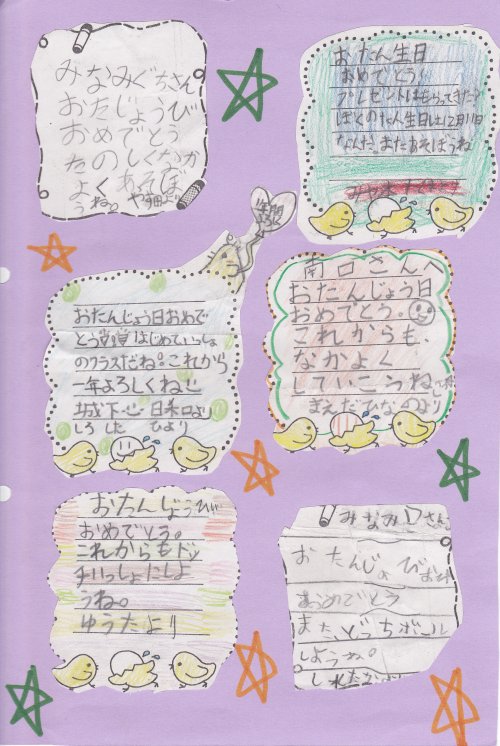 みなみぐちさん
おたじょうび
おめでとう
たのしくなか
よくあそぼ
うね。
おたん生日
おめでとう!
プレゼントはもらってきた?
ぼくのたん生日は12月11日
なんだ。またあそぼうね
おたんじょう日おめで
とう はじめていっしょ
のクラスだね。これから
一年よろしくね!!
城下 日和より
しろした ひより
南口さんへ
おたんじょう日
おめでとう。
これからも、
なかよく
していこうね
まえだひなのより
おたんじょうび
おめでとう。
これからもドッ
チいっしょにしよ
うね。
ゆうたより
みなみ口さん
おたんじょび
おめでとう
また、どっちボール
しようね。